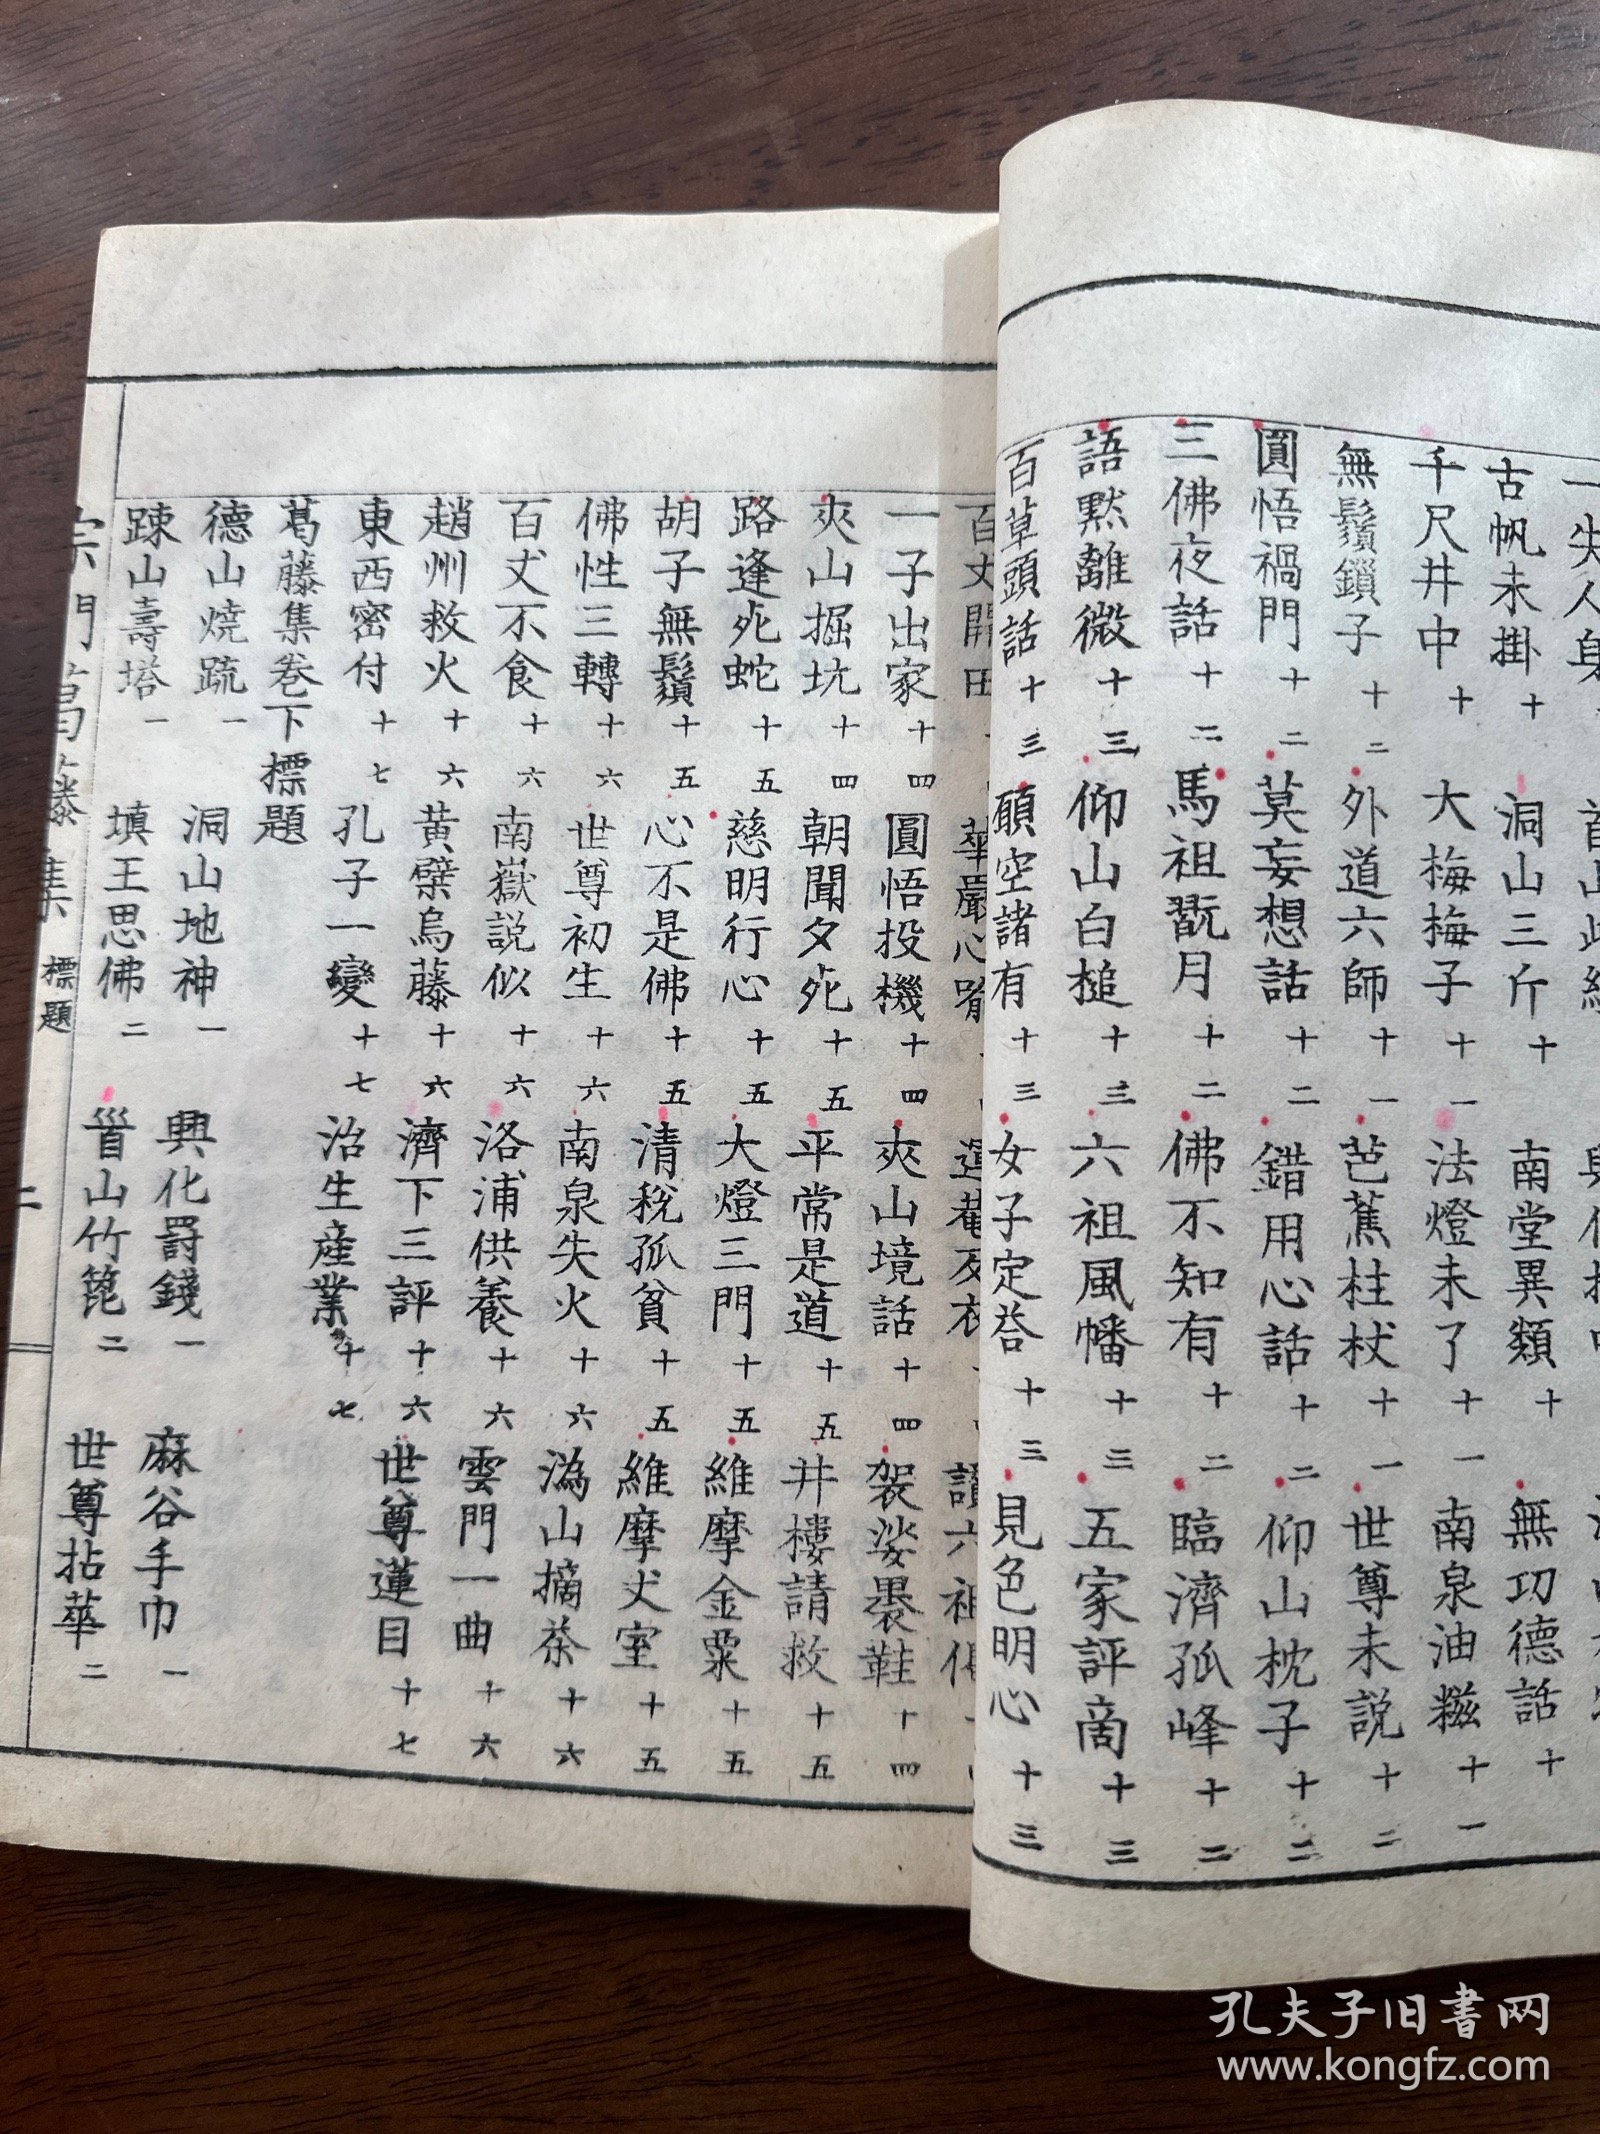 古帆未掛十　洞山三斤十　南堂異類十　無功德話十
千尺井中十　大梅梅子十一　法燈未了十一　南泉油糍十一
無鬚鎖子十二　外道六師十一　芭蕉柱杖十一　世尊未説十二
圓悟禍門十二　莫妄想話十二　錯用心話十二　仰山枕子十二
三佛夜話十二　馬祖翫月十二　佛不知有十二　臨濟孤峰十二
語黙離微十三　仰山白槌十三　六祖風幡十三　五家評商十三
百草頭話十三　願空諸有十三　女子定答十三　見色明心十三
一子出家十四　圓悟投機十四　夾山境話十四　袈裟裹鞋十四
夾山掘坑十四　朝聞夕死十五　平常是道十五　井樓請救十五
路逢死蛇十五　慈明行心十五　大燈三門十五　維摩金粟十五
胡子無鬚十五　心不是佛十五　清税孤貧十五　維摩丈室十五
佛性三轉十六　世尊初生十六　南泉失火十六　溈山摘茶十六
百丈不食十六　南嶽説似十六　洛浦供養十六　雲門一曲十六
趙州救火十六　黄檗烏藤十六　濟下三評十六　世尊蓮目十七
東西密付十七　孔子一變十七　治生産業十七
葛藤集巻下標題
德山燒疏一　洞山地神一　興化罸錢一　麻谷手巾一
踈山壽塔一　填王思佛二　首山竹篦二　世尊拈華二
宗門葛藤集 標題 二
孔夫子旧書网
www.kongfz.com